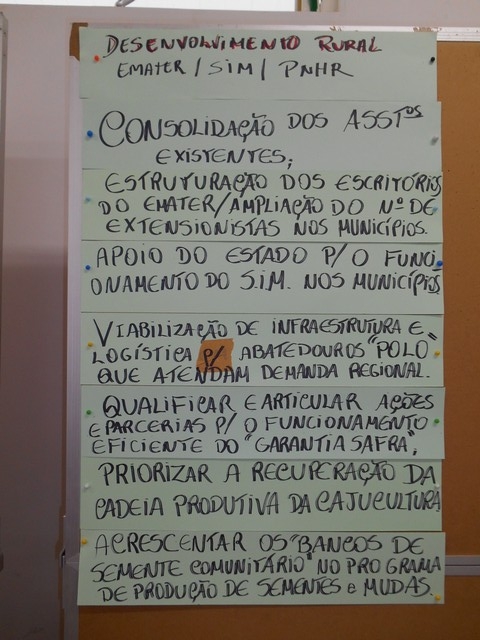 DESENVOLVIMENTO RURAL
EMATER / SIM / PNHR
CONSOLIDAÇÃO DOS ASSTOS
EXISTENTES;
ESTRUTURAÇÃO DOS ESCRITÓRIOS
DO EMATER/AMPLIAÇÃO DO Nº DE
EXTENSIONISTAS NOS MUNICÍPIOS.
APOIO DO ESTADO P/ O FUNCI
ONAMENTO DO S.I.M. NOS MUNICÍPIOS
VIABILIZAÇÃO DE INFRAESTRUTURA E
LOGÍSTICA P/ ABATEDOUROS "POLO"
QUE ATENDAM DEMANDA REGIONAL.
QUALIFICAR E ARTICULAR AÇÕES
E PARCERIAS P/ O FUNCIONAMENTO
EFICIENTE DO "GARANTIA SAFRA";
PRIORIZAR A RECUPERAÇÃO DA
CADEIA PRODUTIVA DA CAJUCULTURA
ACRESCENTAR OS "BANCOS DE
SEMENTE COMUNITÁRIO" NO PROGRAMA
DE PRODUÇÃO DE SEMENTES e MUDAS.